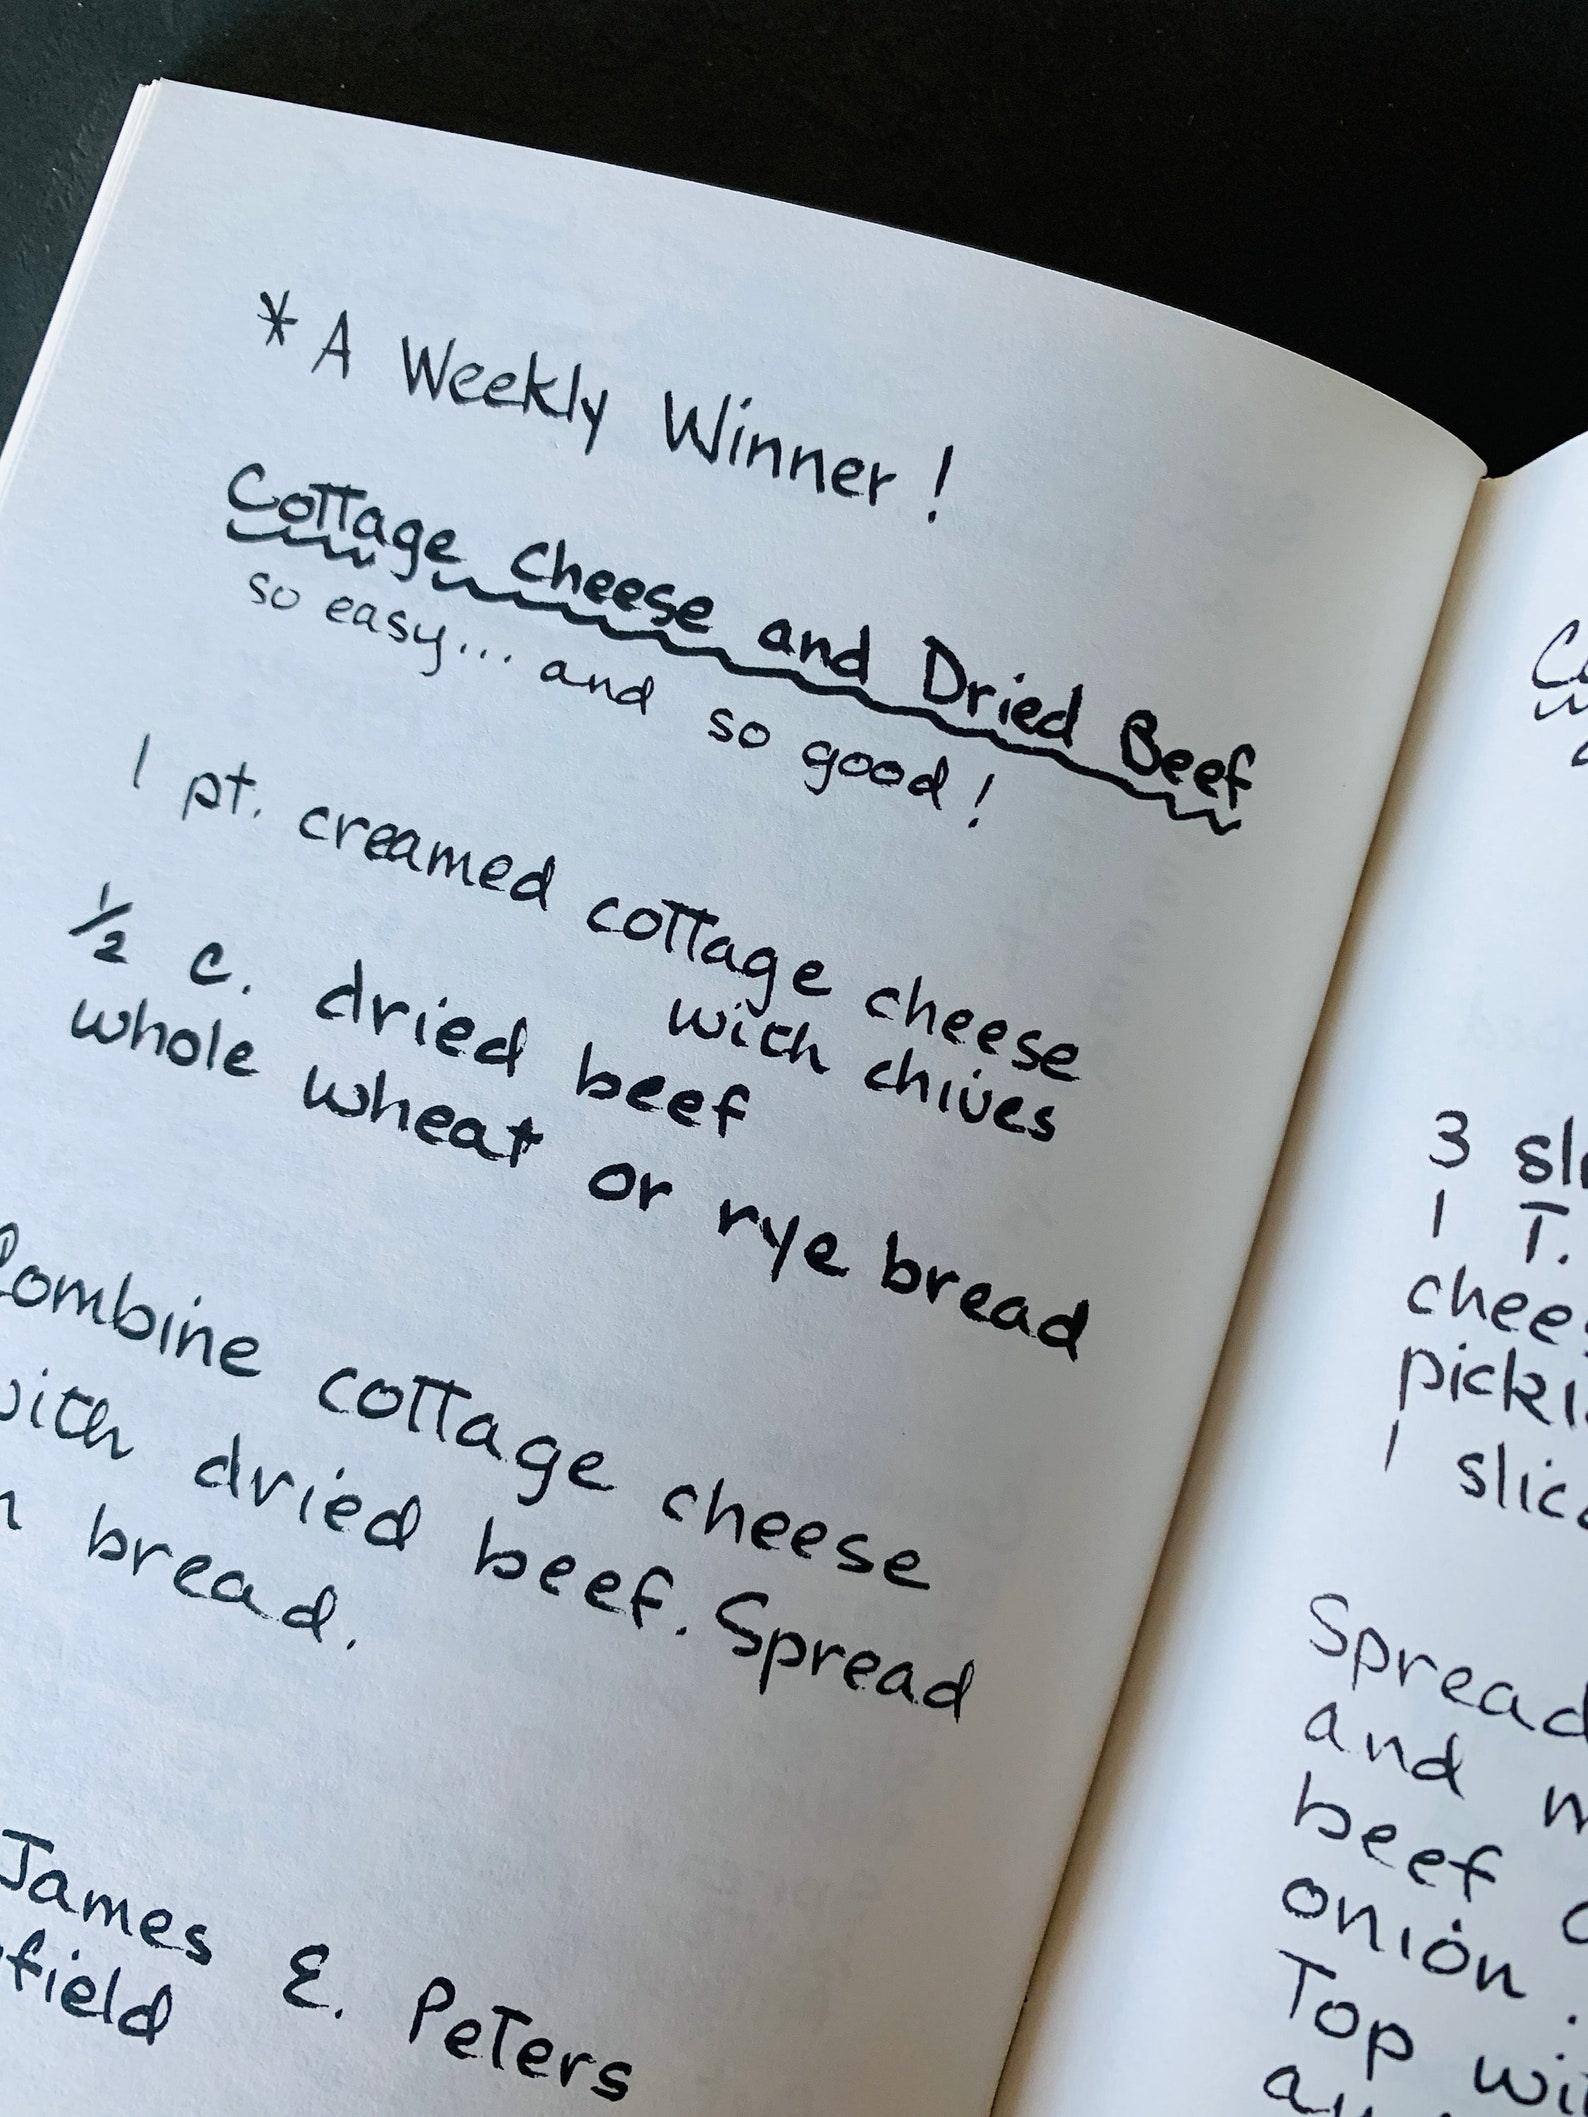 * A Weekly Winner!
Cottage Cheese and Dried Beef
so easy... and so good!
1 pt. creamed cottage cheese
with chives
1/2 c. dried beef
whole wheat or rye bread
Combine cottage cheese
with dried beef. Spread
bread.
James E. Peters
field
3
1 T.
Spread
and
beef
onion.
Top